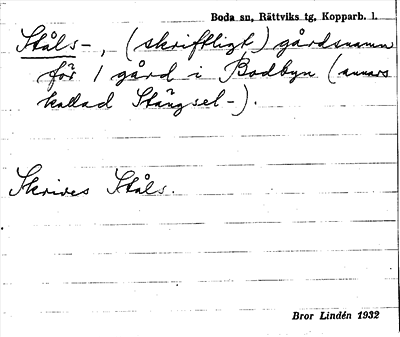 Boda sn, Rättviks tg, Kopparb. l.
Ståls-, (skriftligt) gårdsnamn
för 1 gård i Bodbyn (annars
kallad Stängsel-).
Skrives Ståls.
Bror Lindén 1932